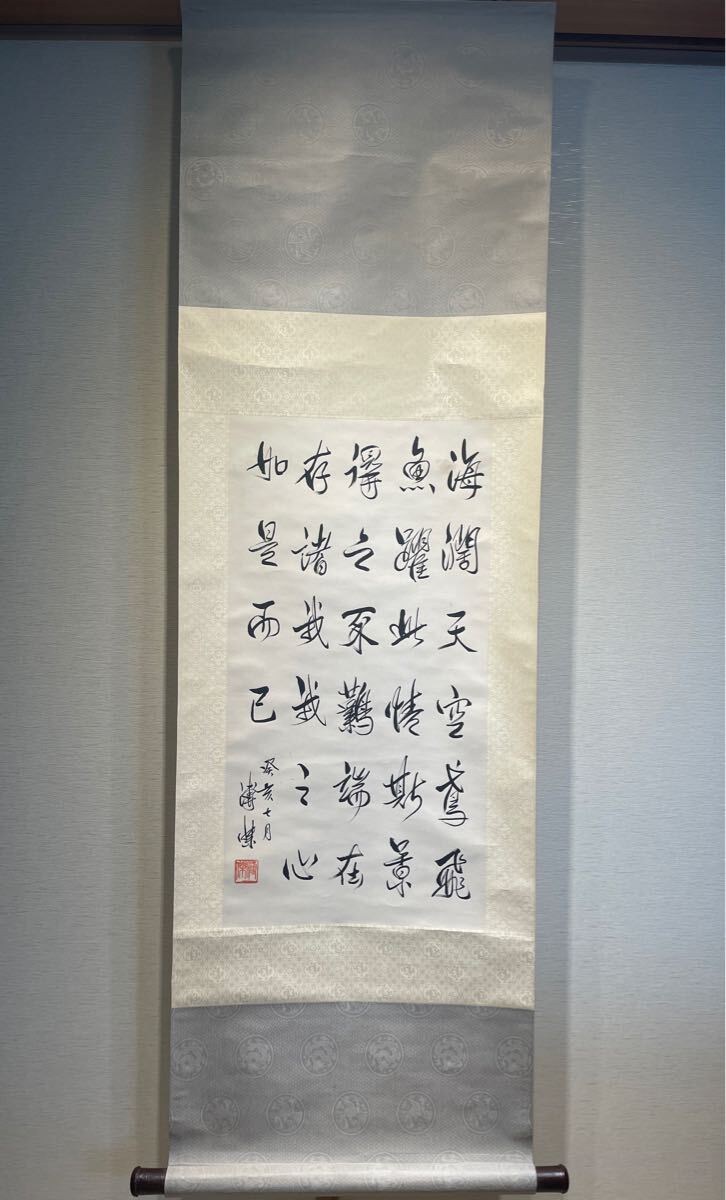 海闊天空鳶飛
魚躍此情斯景
之難端在
存諸我我之心
如是而已
癸亥七月
溥傑